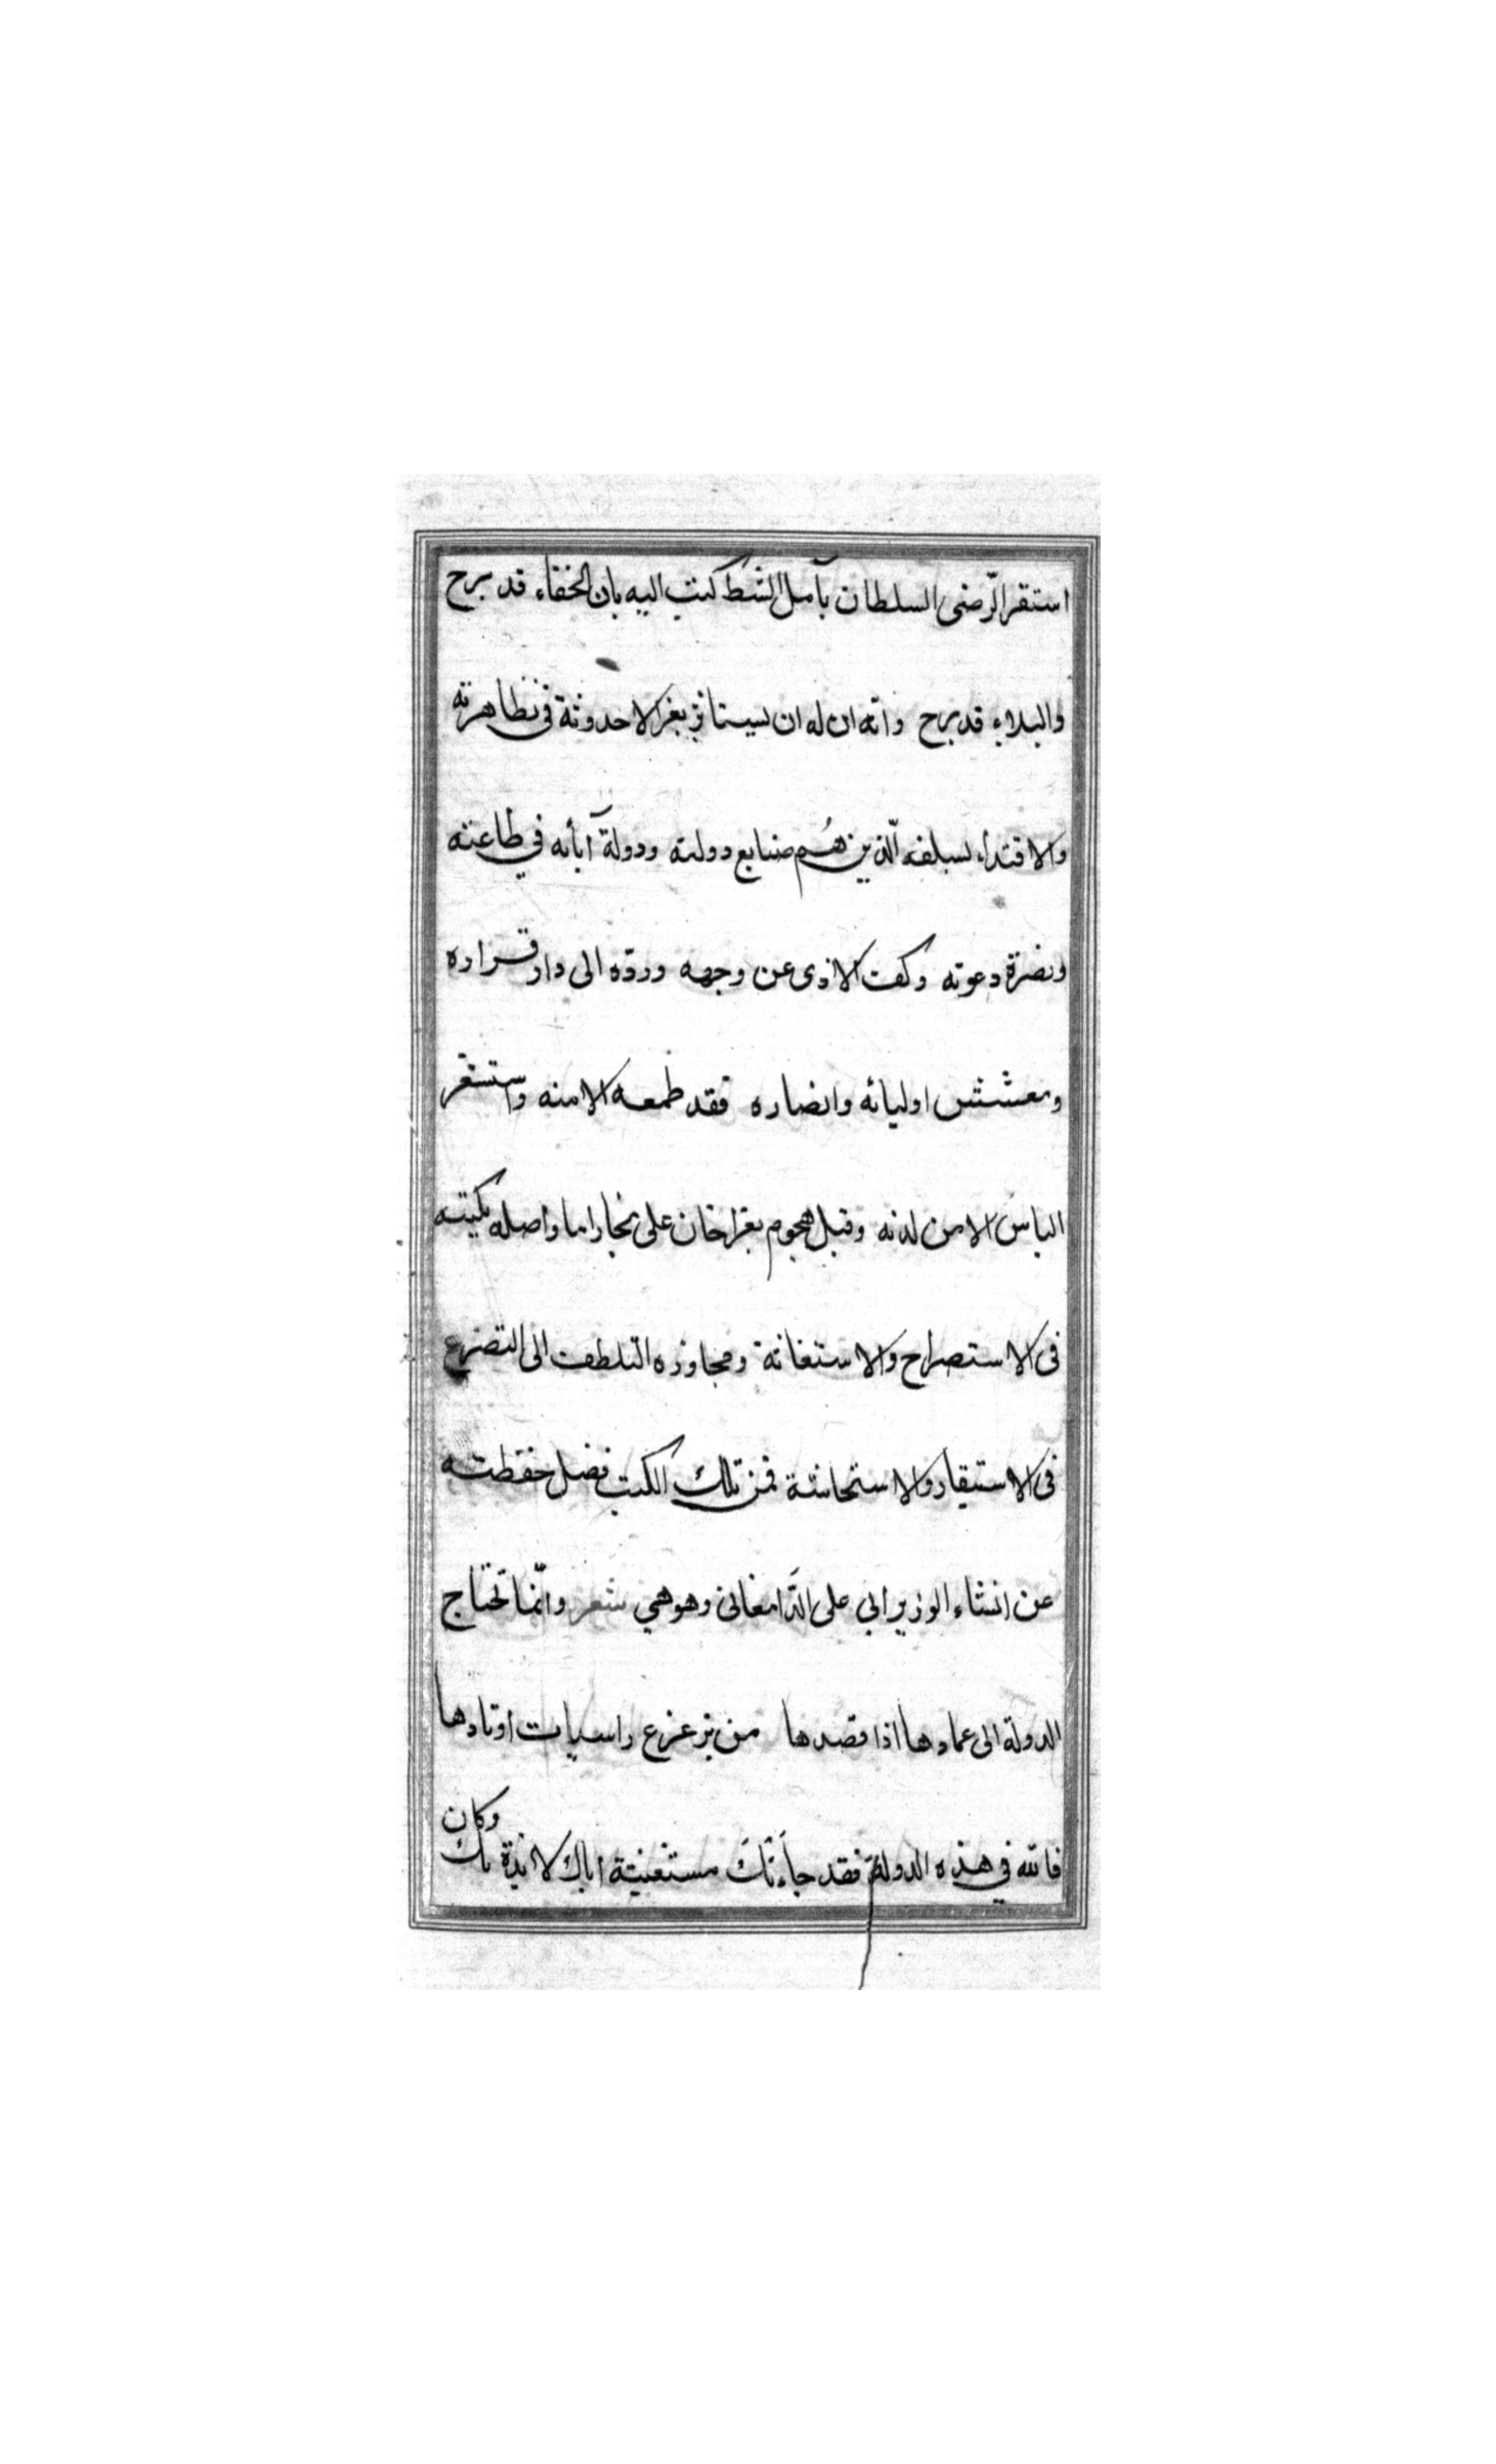 استقر الرّضى السلطان بآمل الشط كتب اليه بان الخفاء قد برح
والبلاء قد برح وانّه ان له ان يستاثر بغر الاحدوثة فى تظاهرته
والاقتداء بسلفه الّذين هُم صنايع دولته ودولة آبأئه في طاعته
ونصرة دعوته وكف الاذى عن وجهه وردّه الى دار قراره
ومعشش اوليائه وانصاره فقد طمعه الا منه واستنفر
الباس الا من لدنه وقبل هجوم بغراخان على بخارا ما واصله بكتبه
فى الاستصراح والاستغاثة ومجاوزه التلطف الى التضرع
فى الاستيقار والاستحاشة فمن تلك الكتب فصل حفظته
عن انشاء الوزير ابي على الدّامغانى وهو هي شعر وانّما تحتاج
الدولة الى عمادها اذا قصدها من يزعزع راسيات اوتادها
فالله في هذه الدولة فقد جاءَتكَ مستغنية اباك لائذة بك
وكان